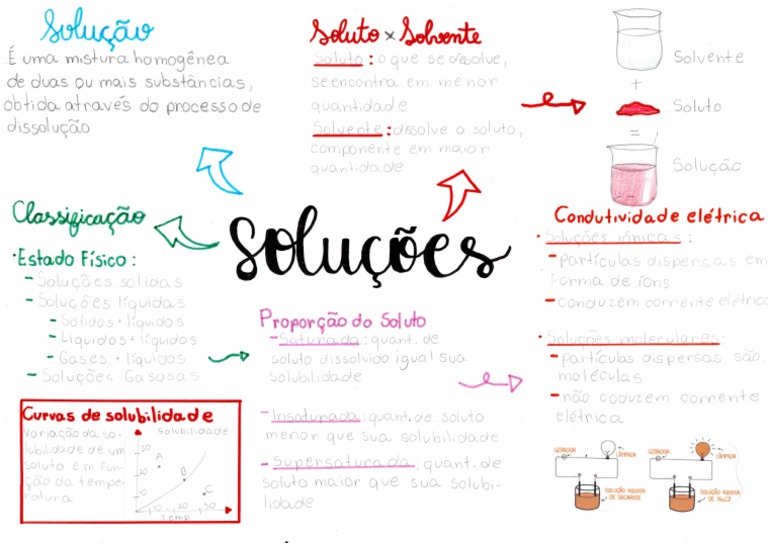 Solução
É uma mistura homogênea
de duas ou mais substâncias,
obtida através do processo de
dissolução
Soluto x Solvente
Soluto: o que se dissolve,
se encontra em menor
quantidade
Solvente: dissolve o soluto,
componente em maior
quantidade
Solvente
+
Soluto
=
Solução
Soluções
Classificação
• Estado Físico:
- Soluções sólidas
- Soluções líquidas
- Sólidos + líquidos
- Líquidos + líquidos
- Gases + líquidos
- Soluções Gasosas
Proporção do Soluto
- Saturada: quant. de
soluto dissolvido igual sua
solubilidade
- Insaturada: quant. de soluto
menor que sua solubilidade
- Supersaturada: quant. de
soluto maior que sua solubi-
lidade
Condutividade elétrica
• Soluções iônicas:
- partículas dispersas em
forma de íons
- conduzem corrente elétrica
• Soluções moleculares:
- partículas dispersas são
moléculas
- não coduzem corrente
elétrica
Curvas de solubilidade
Variação da so-
lubilidade de um
soluto em fun-
ção da tempe-
ratura
Solubilidade
A
B
C
Temp
GERADOR
LÂMPADA
SOLUÇÃO AQUOSA
DE SACAROSE
GERADOR
LÂMPADA
SOLUÇÃO AQUOSA